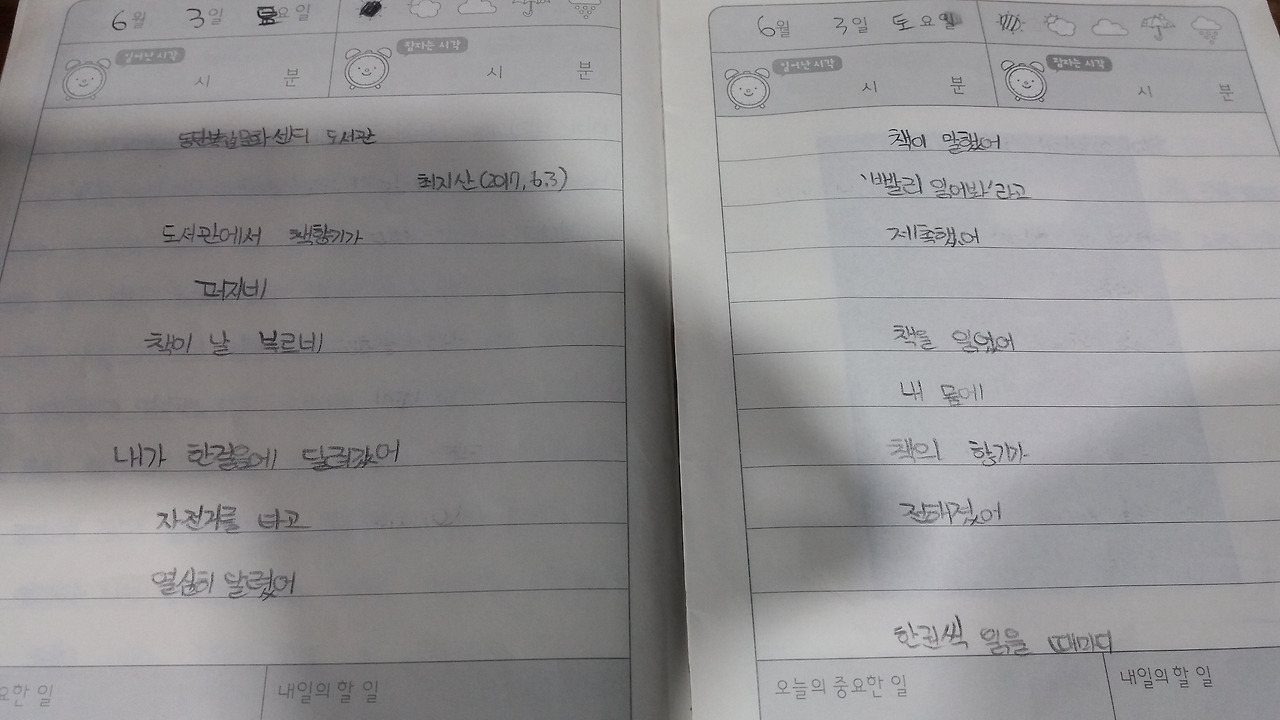 6월 3일 토요일
일어난 시각 잠자는 시각
시 분 시 분
동탄복합문화센터 도서관
최지산(2017.6.3)
도서관에서 책향기가
퍼지네
책이 날 부르네
내가 한걸음에 달려갔어
자전거를 타고
열심히 달렸어
요한 일 내일의 할 일
6월 3일 토요일
일어난 시각 잠자는 시각
시 분 시 분
책이 말했어
'빨리 읽어봐'라고
제촉했어
책을 읽었어
내 몸에
책의 향기가
전해졌어
한권씩 읽을 때마다
오늘의 중요한 일 내일의 할 일